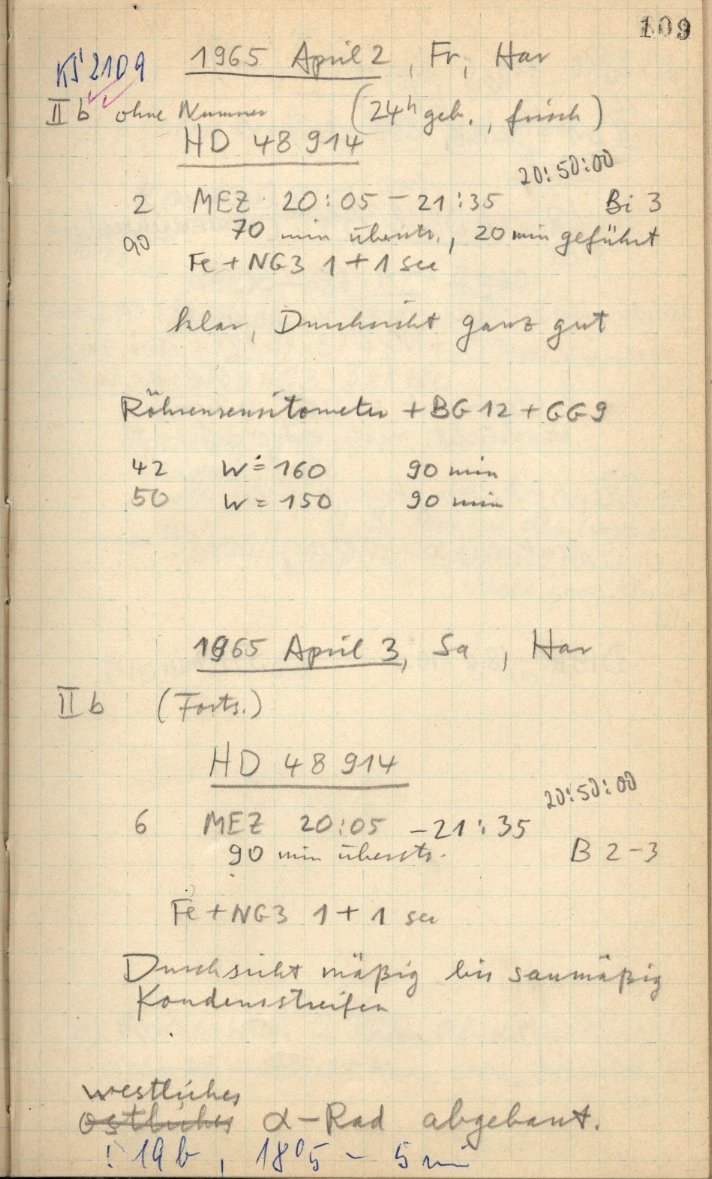 109
1965 April 2, Fr, Har
2109
II b ohne Nummer (24h geb., frisch)
HD 48 914
20:50:00
2 MEZ 20:05 - 21:35 Bi 3
90 70 min überstr., 20 min geführt
Fe + NG3 1 + 1 sec
klar, Durchsicht ganz gut
Röhrensensitometer + BG 12 + GG 9
42 W = 160 90 min
50 W = 150 90 min
1965 April 3, Sa, Har
II b (Forts.)
HD 48 914
20:50:00
6 MEZ 20:05 - 21:35
90 min überstr. B 2-3
Fe + NG3 1 + 1 sec
Durchsicht mäßig bis saumäßig
Kondensstreifen
westliches
östliches α-Rad abgebaut.